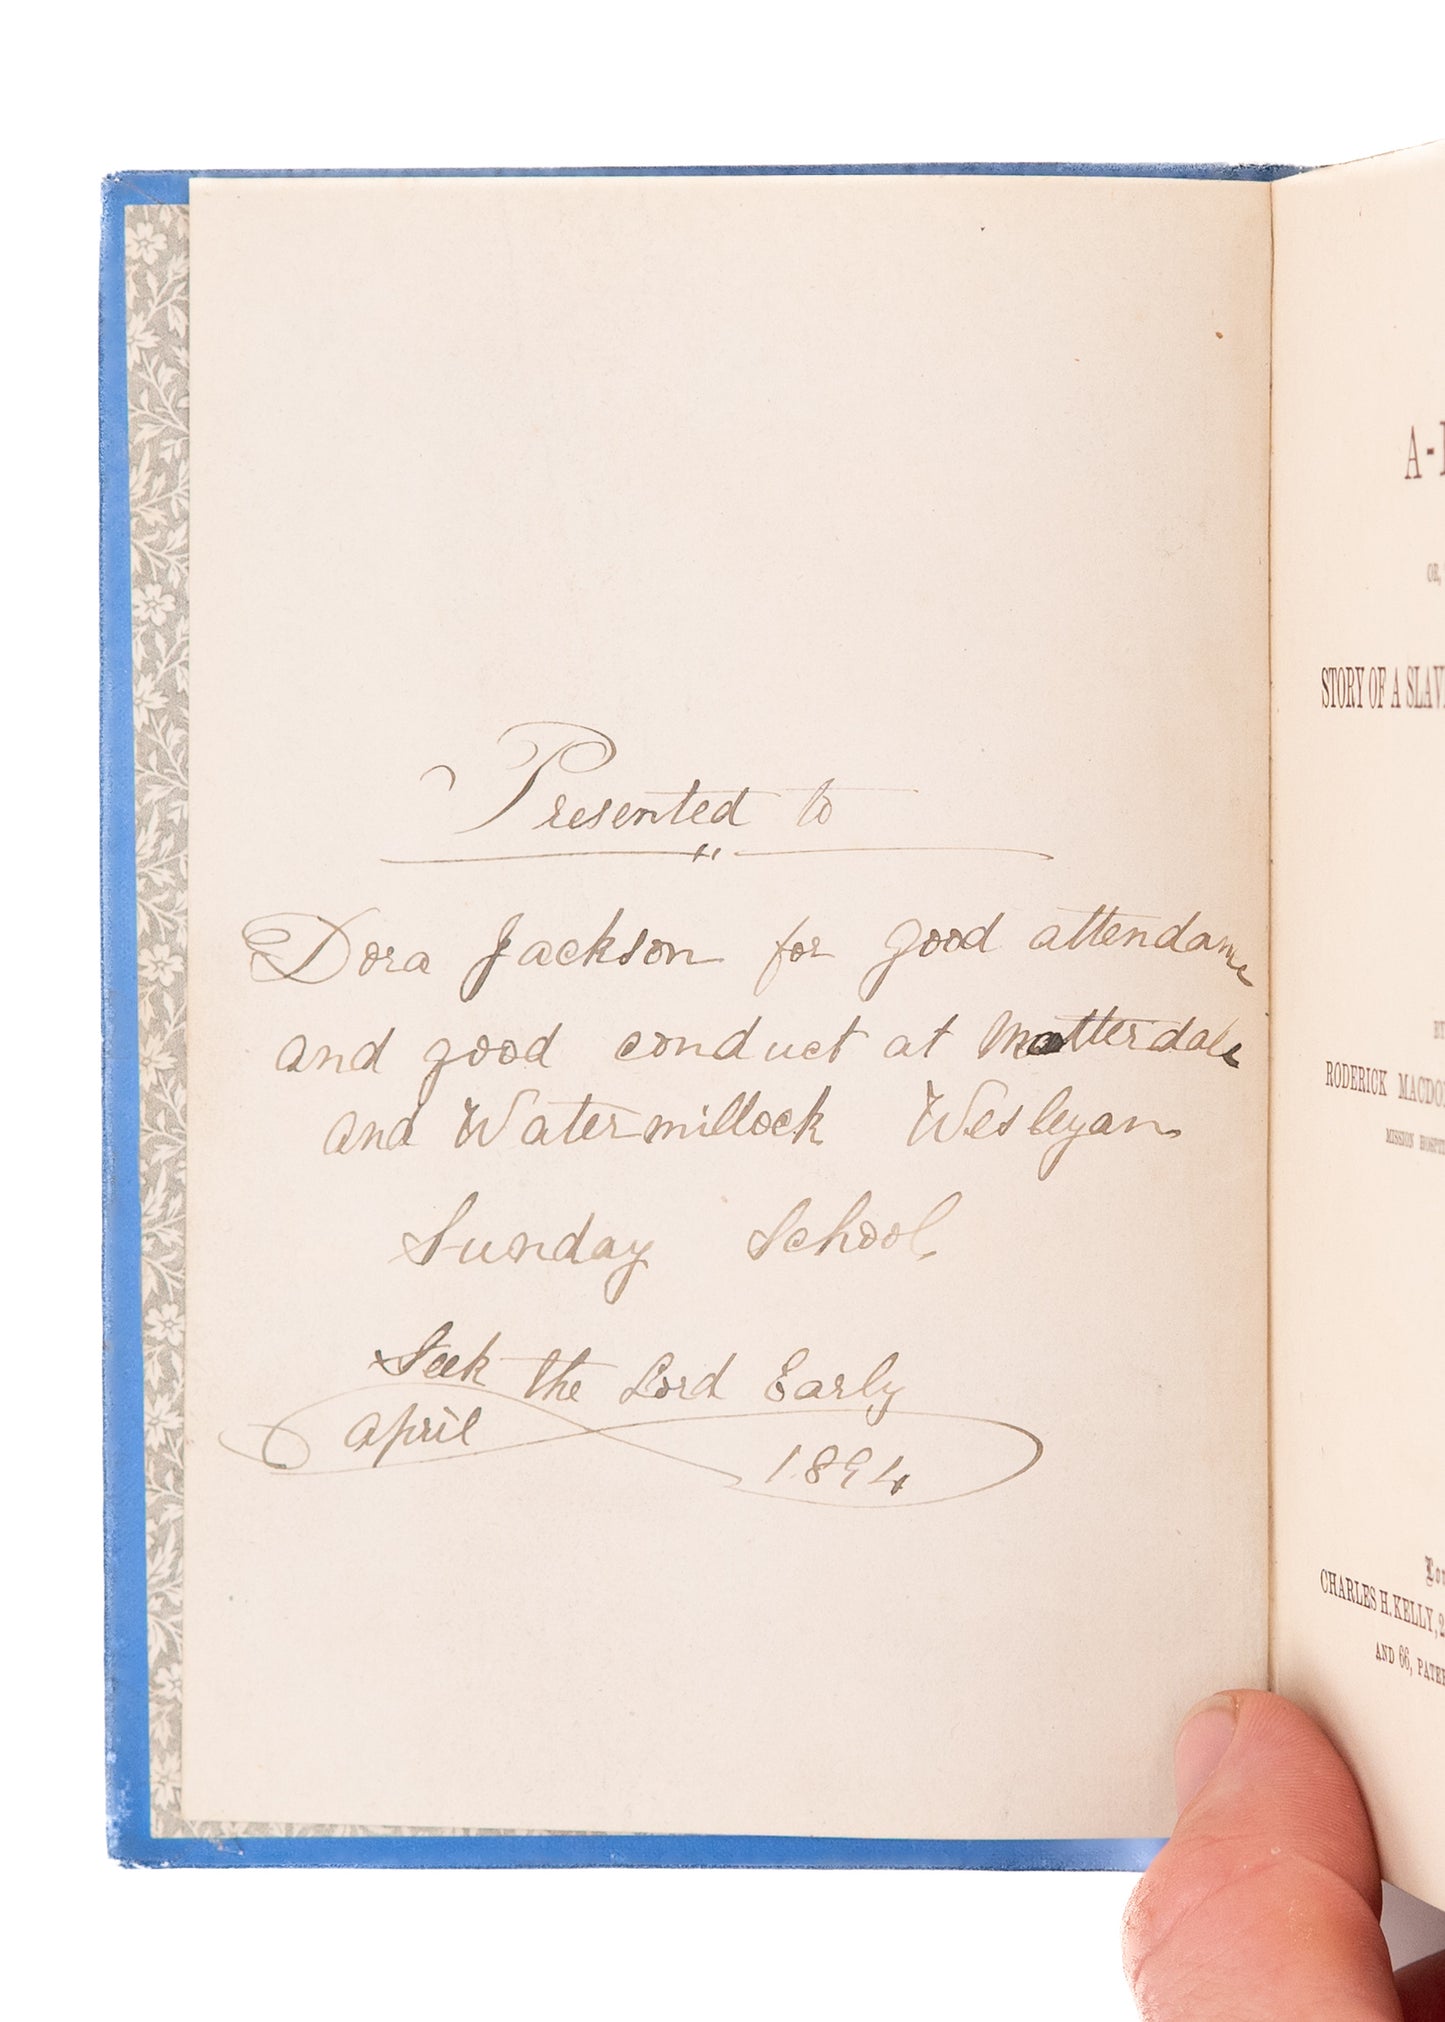 Presented to
Dora Jackson for good attendance
and good conduct at Matterdale
and Watermillock Wesleyan
Sunday School
Seek the Lord Early
April
1894
A-
OR,
STORY OF A SLAV
RODERICK MACDO
MISSION HOSPI
CHARLES H. KELLY, 2
AND 66, PATER